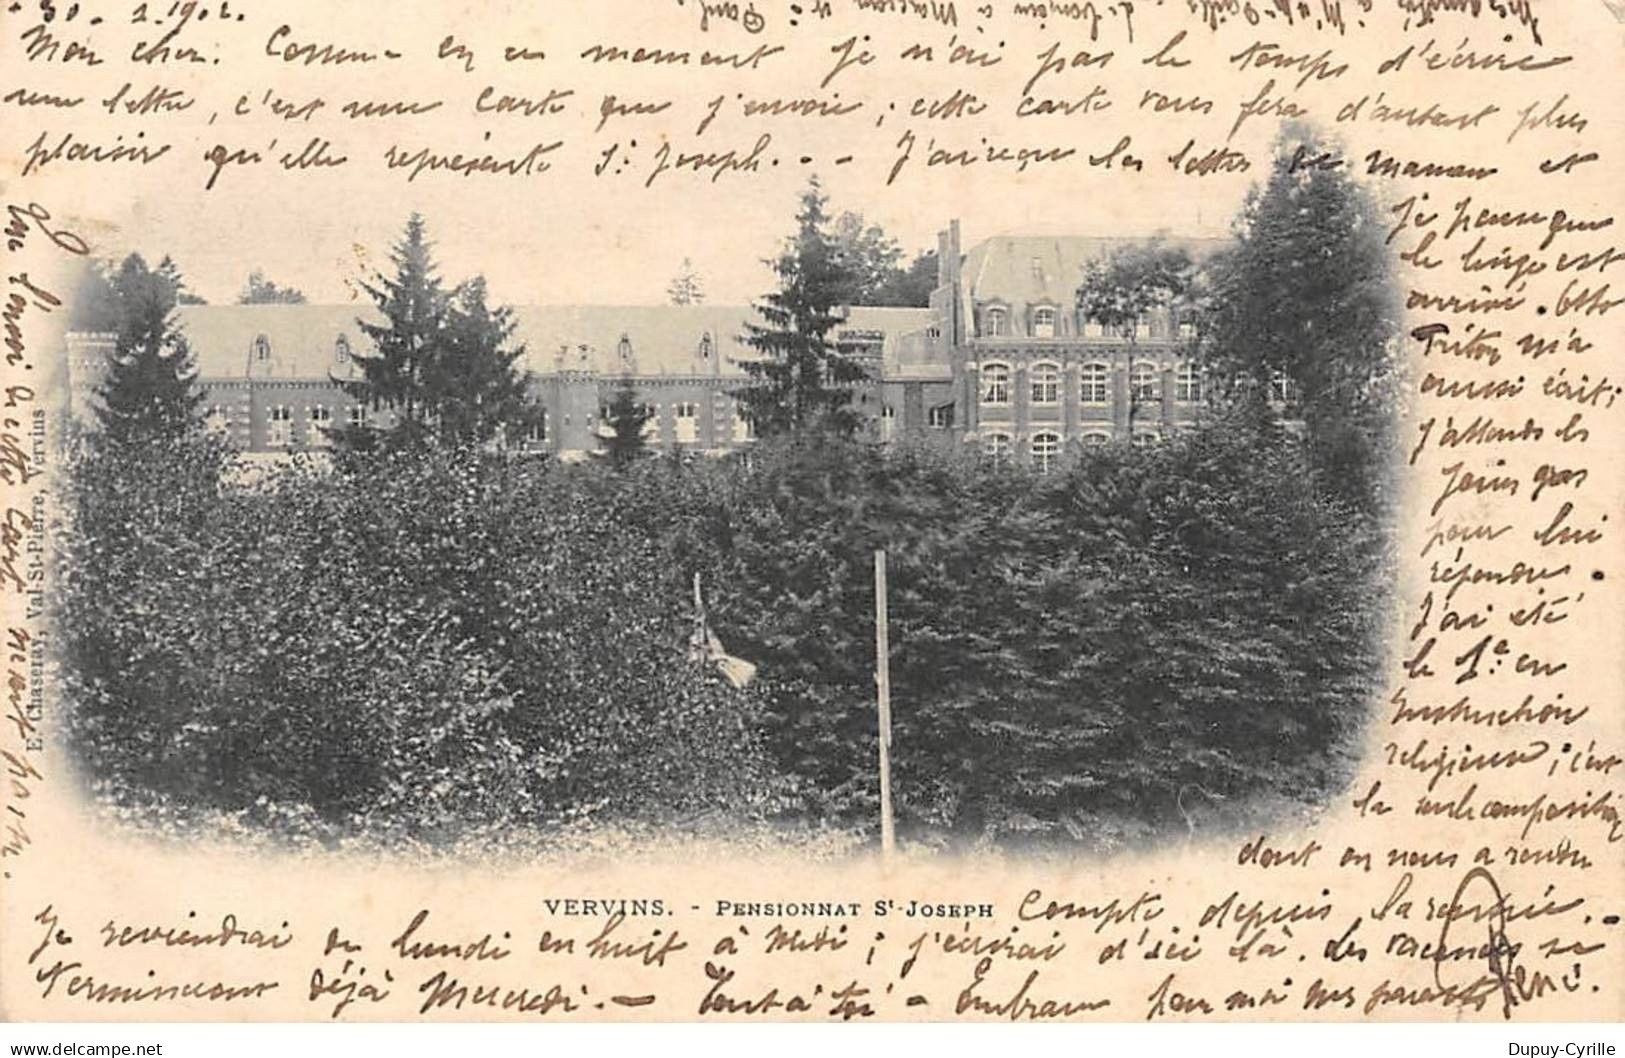 1902.
Mon cher. Comme en ce moment je n'ai pas le temps d'écrire
une lettre, c'est une carte que j'envoie ; cette carte vous fera d'autant plus
plaisir qu'elle représente St Joseph. - - J'ai reçu les lettres de maman et
je pense que
le linge est
arrivé.
m'a
aussi écrit ;
j'attends les
Jours gras
pour lui
répondre.
J'ai été
le 1er en
Instruction
religieuse ; c'est
la seule composition
dont on nous a rendu
compte depuis la rentrée. -
Je reviendrai de lundi en huit à Midi ; j'écrirai d'ici là. Les vacances se
termineront déjà Mercredi. - Tout à toi - Embrasse pour moi nos parents
René.
VERVINS. - PENSIONNAT St-JOSEPH
E. Chaseray, Val-St-Pierre, Vervins
Que l'envoi de cette carte
delcampe.net
Dupuy-Cyrille